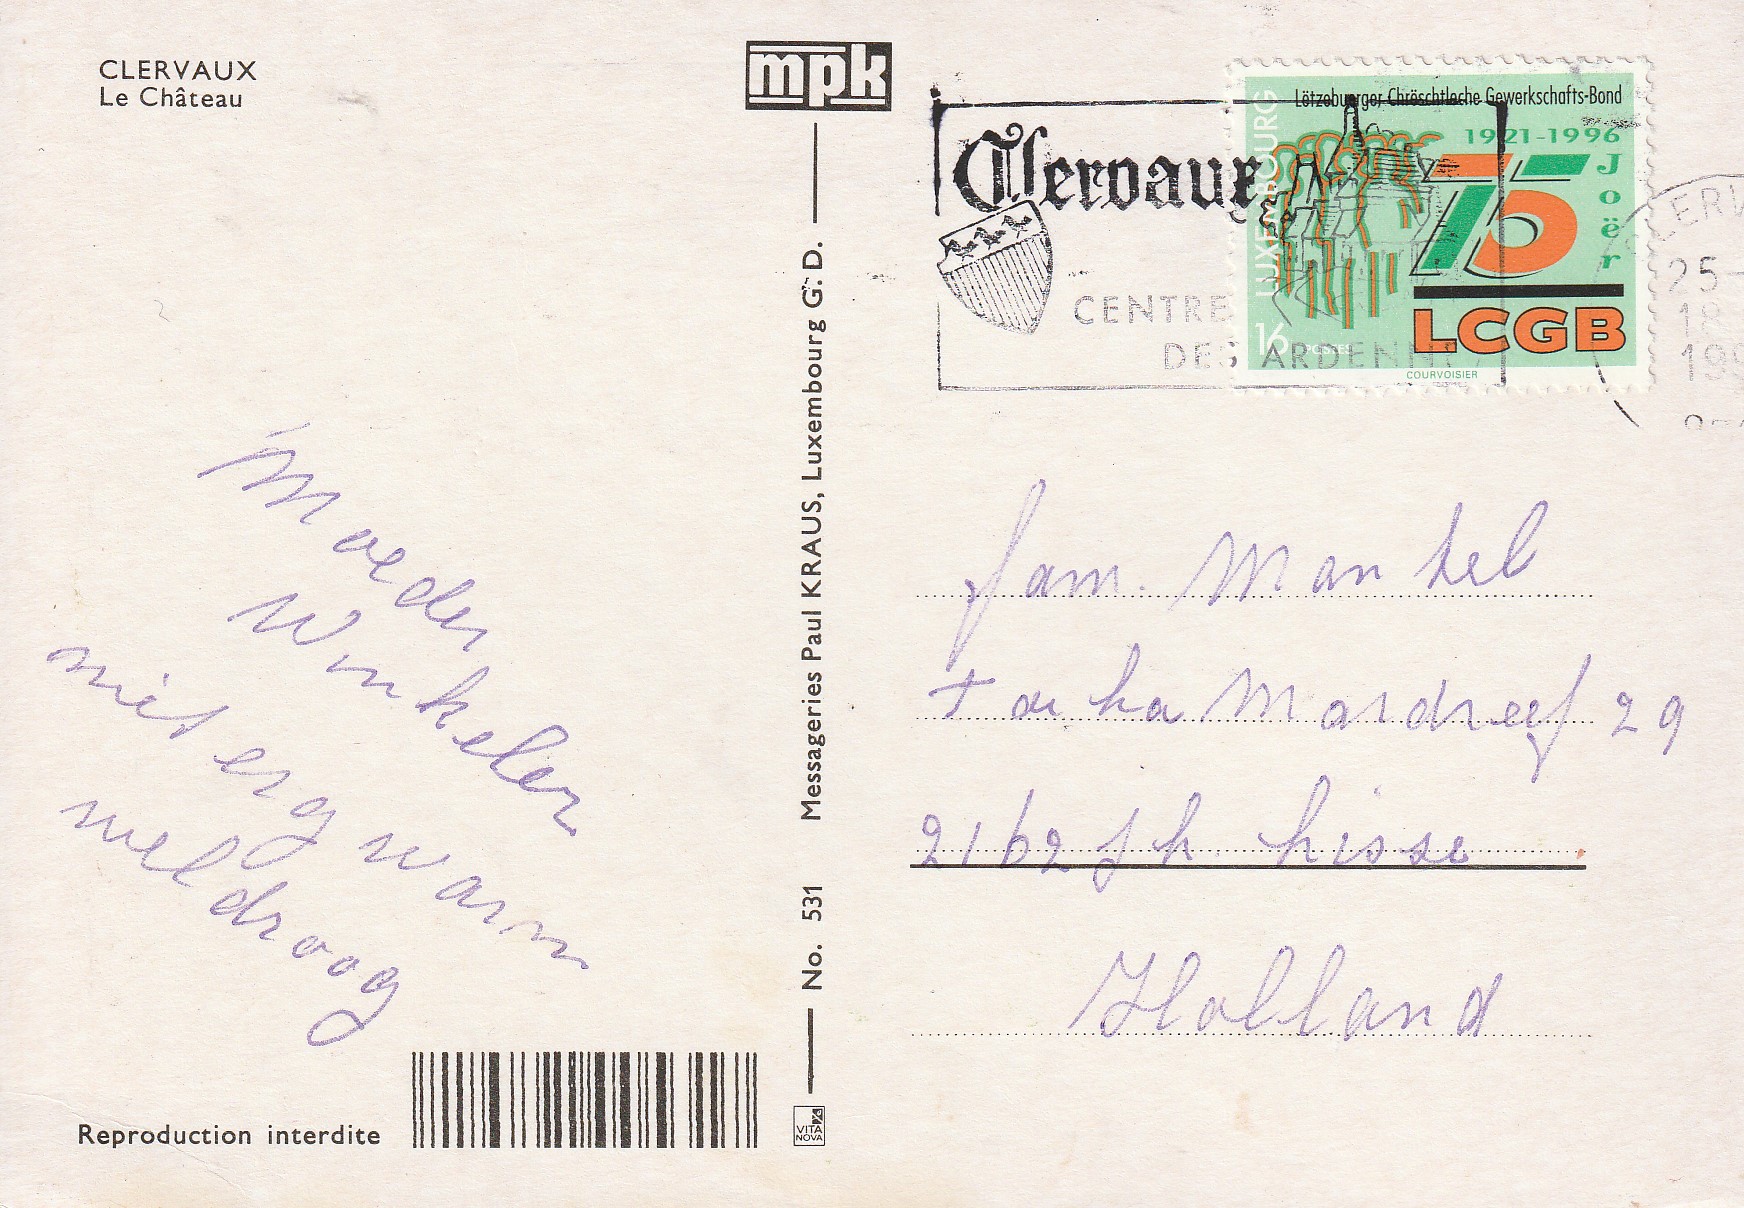 CLERVAUX
Le Château
mpk
Moeder
Winkeler
niet erg warm
wel droog
Reproduction interdite
No. 531 Messageries Paul KRAUS, Luxembourg G. D.
VITA
NOVA
Clervaux
CENTRE
DES ARDENN
Lëtzebuerger Chrëschtleche Gewerkschafts-Bond
1921-1996
75
Joër
LCGB
LUXEMBOURG
16
POSTES
COURVOISIER
CLERV
25-
18
Fam. Mankel
29
2162 Lisse
Holland